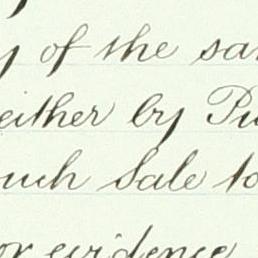 y of the sa
either by Pu
uch Sale to
or evidence